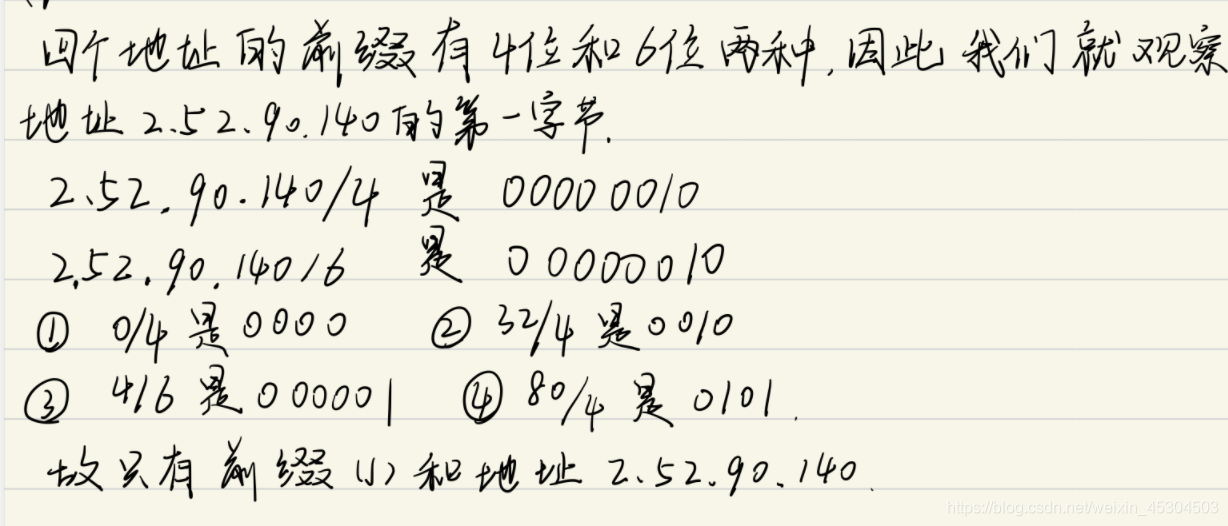 四个地址的前缀有4位和6位两种,因此我们就观察
地址2.52.90.140的第一字节.
2.52.90.140/4 是 00000010
2.52.90.140/6 是 00000010
① 0/4是0000 ② 32/4是0010
③ 4/6是000001 ④ 80/4是0101.
故只有前缀(1)和地址2.52.90.140.
https://blog.csdn.net/weixin_45304503